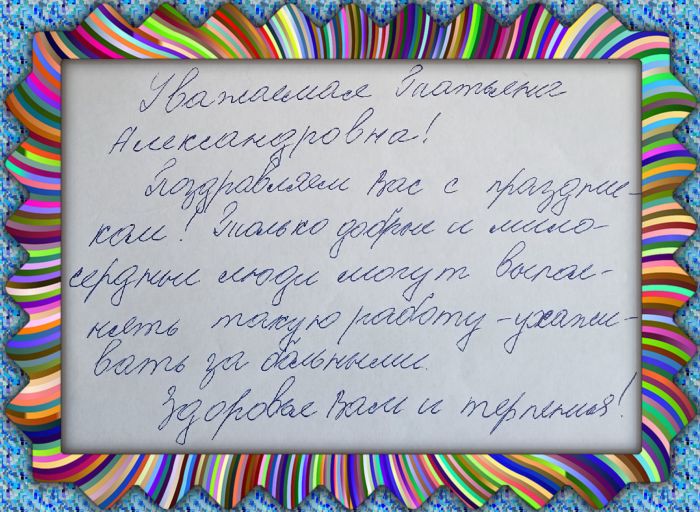 Уважаемая Татьяна
Александровна!
Поздравляем Вас с праздни-
ком! Только добрые и мило-
сердные люди могут выпол-
нять такую работу - ухажи-
вать за больными.
Здоровья Вам и терпения!